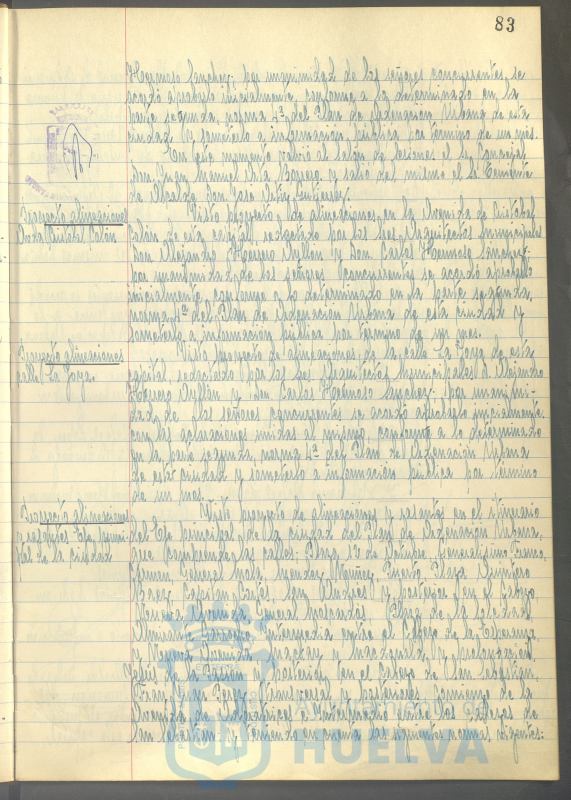 83
Hermoso Sanchez: por unanimidad de los señores concurrentes, se
acordó aprobarlo inicialmente, conforme a lo determinado en la
parte segunda, norma 4ª del Plan de Ordenación Urbana de esta
ciudad y someterlo a información pública por término de un mes.
En este momento volvió al salón de sesiones el Sr. Concejal
Don Juan Manuel y salió del mismo el Sr. Teniente
de Alcalde Don José
Proyecto alineaciones
Avda. Cristobal Colón
Visto proyecto de alineaciones en la Avenida de Cristobal
Colón de esta capital, redactado por los Sres. Arquitectos Municipales
Don Alejandro Herrero Ayllón y Don Carlos Hermoso Sanchez:
por unanimidad de los señores concurrentes se acordó aprobarlo
inicialmente, conforme a lo determinado en la parte segunda,
norma 4ª del Plan de Ordenación Urbana de esta ciudad y
someterlo a información pública por término de un mes.
Proyecto alineaciones
calle La Joya.
Visto proyecto de alineaciones de la calle La Joya de esta
capital, redactado por los Sres. Arquitectos Municipales D. Alejandro
Herrero Ayllón y Don Carlos Hermoso Sanchez: por unanimi-
dad de los señores concurrentes se acordó aprobarlo inicialmente
con las aclaraciones unidas al mismo, conforme a lo determinado
en la parte segunda, norma 4ª del Plan de Ordenación Urbana
de esta ciudad y someterlo a información pública por término
de un mes.
Proyecto alineaciones
y rasantes Eje princi-
pal de la ciudad
Visto proyecto de alineaciones y rasantes en el itinerario
del Eje principal de la ciudad del Plan de Ordenación Urbana,
que comprende las calles, Plaza 12 de Octubre, Generalísimo Franco,
General Mola, Mendez Nuñez, Puerto, Plaza Quintero
Baez, Capitan Cortés, San Andrés y posterior en el Cabezo,
General Moscardó, Plaza de la Soledad,
Almirante intermedia entre el Cabezo de la Esperanza
y Avenida Mackay y Macdonald y prolongación,
Jesús de la Pasión, posterior en el Cabezo de San Sebastián,
Fray Juan Perez, transversal y posteriores, comienzo de la
Avenida de e intermedio entre los Cabezos de
San Sebastián y teniendo en cuenta las siguientes normas vigentes:
Ayuntamiento de
HUELVA